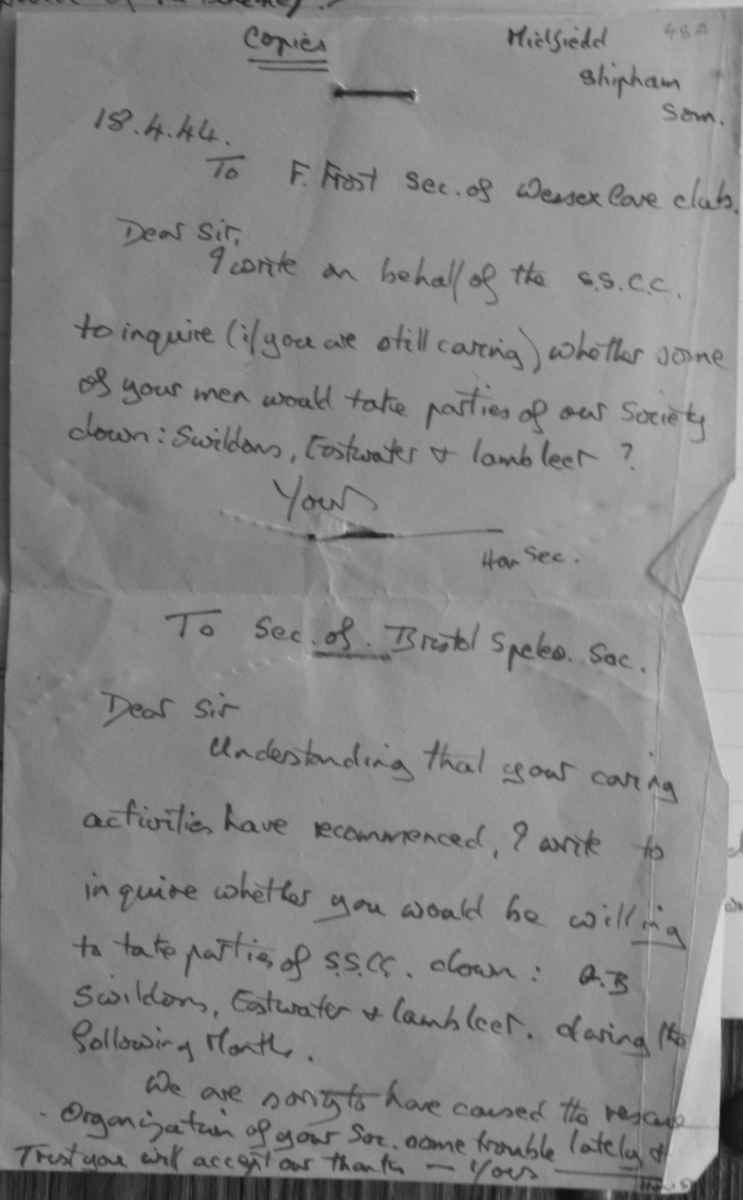 Copies
48A
Mielfiedd
Shipham
Som.
18.4.44.
To F. Frost Sec. of Wessex Cave club.
Dear Sir,
I write on behalf of the S.S.C.C.
to inquire (if you are still caving) whether some
of your men would take parties of our Society
down: Swildons, Eastwater & lambleer ?
Yours
Hon Sec.
To Sec. of. Bristol Speleo. Soc.
Dear Sir
Understanding that your caving
activities have recommenced, I write to
inquire whether you would be willing
to take parties of S.S.C.C. down: G.B
Swildons, Eastwater & lambleer. during the
following Months.
We are sorry to have caused the rescue
Organization of your Soc. some trouble lately &
Trust you will accept our thanks — Yours